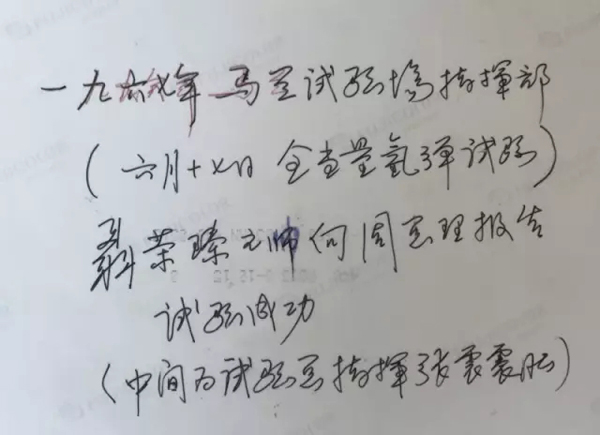 一九六七年 马兰试验场指挥部
(六月十七日 全当量氢弹试验)
聂荣臻元帅向周总理报告
试验成功
(中间为试验总指挥张震寰)